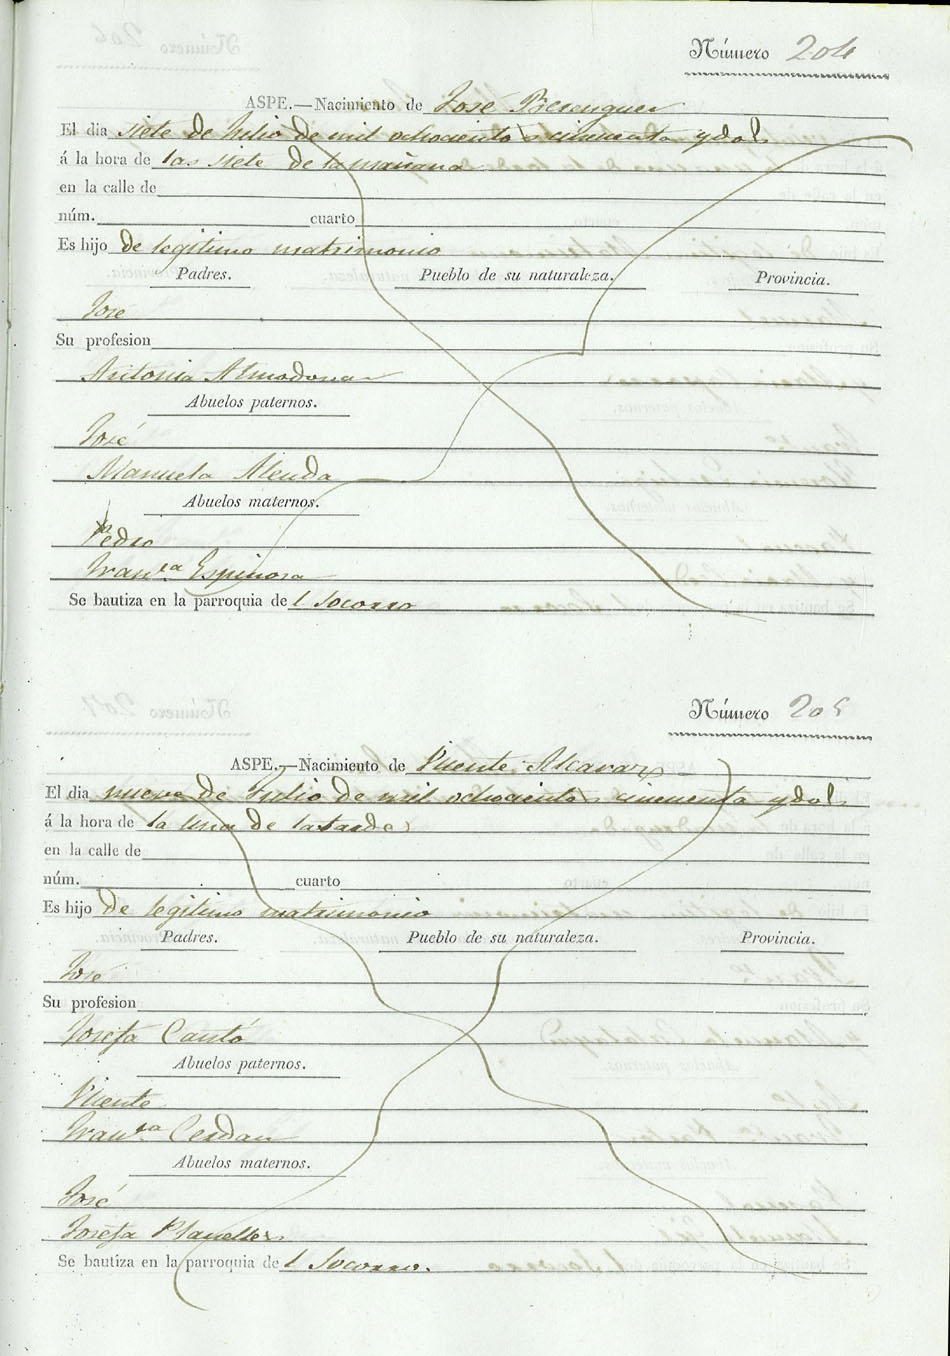 Número 204
ASPE.—Nacimiento de José Berenguer
El dia siete de Julio de mil ochocientos cincuenta y dos
á la hora de las siete de la mañana
en la calle de
núm. cuarto
Es hijo de legitimo matrimonio
Padres. Pueblo de su naturaleza. Provincia.
José
Su profesion
Antonia Almodovar
Abuelos paternos.
José
Manuela Alenda
Abuelos maternos.
Pedro
Franca Espinosa
Se bautiza en la parroquia de l Socorro
Número 205
ASPE.—Nacimiento de Vicente Alcaraz
El dia nueve de Julio de mil ochocientos cincuenta y dos
á la hora de la una de la tarde
en la calle de
núm. cuarto
Es hijo de legitimo matrimonio
Padres. Pueblo de su naturaleza. Provincia.
José
Su profesion
Josefa Cantó
Abuelos paternos.
Vicente
Franca Cerdan
Abuelos maternos.
José
Josefa Planelles
Se bautiza en la parroquia de l Socorro.